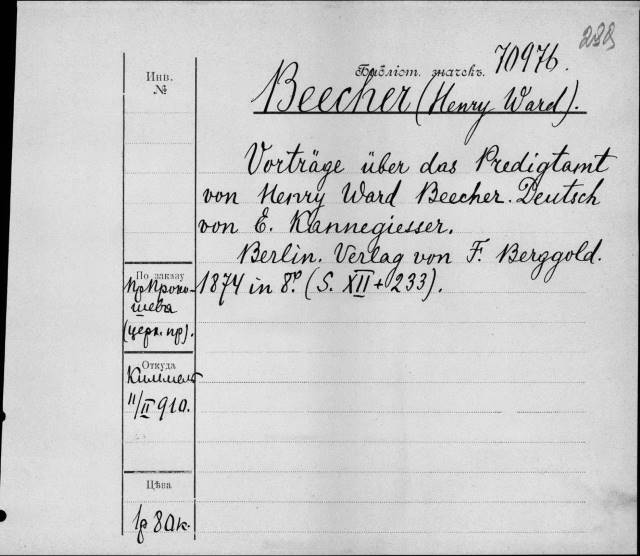 288
Библіот. значекъ. 70976.
Beecher (Henry Ward).
Инв.
№
Vorträge über das Predigtamt
von Henry Ward Beecher. Deutsch
von E. Kannegiesser.
Berlin. Verlag von F. Berggold.
1874 in 8º. (S. XII + 233).
По заказу
Пр Проко-
шева
(церк. пр).
Откуда
Киммель
11/II 910.
Цѣна
1р 80к.